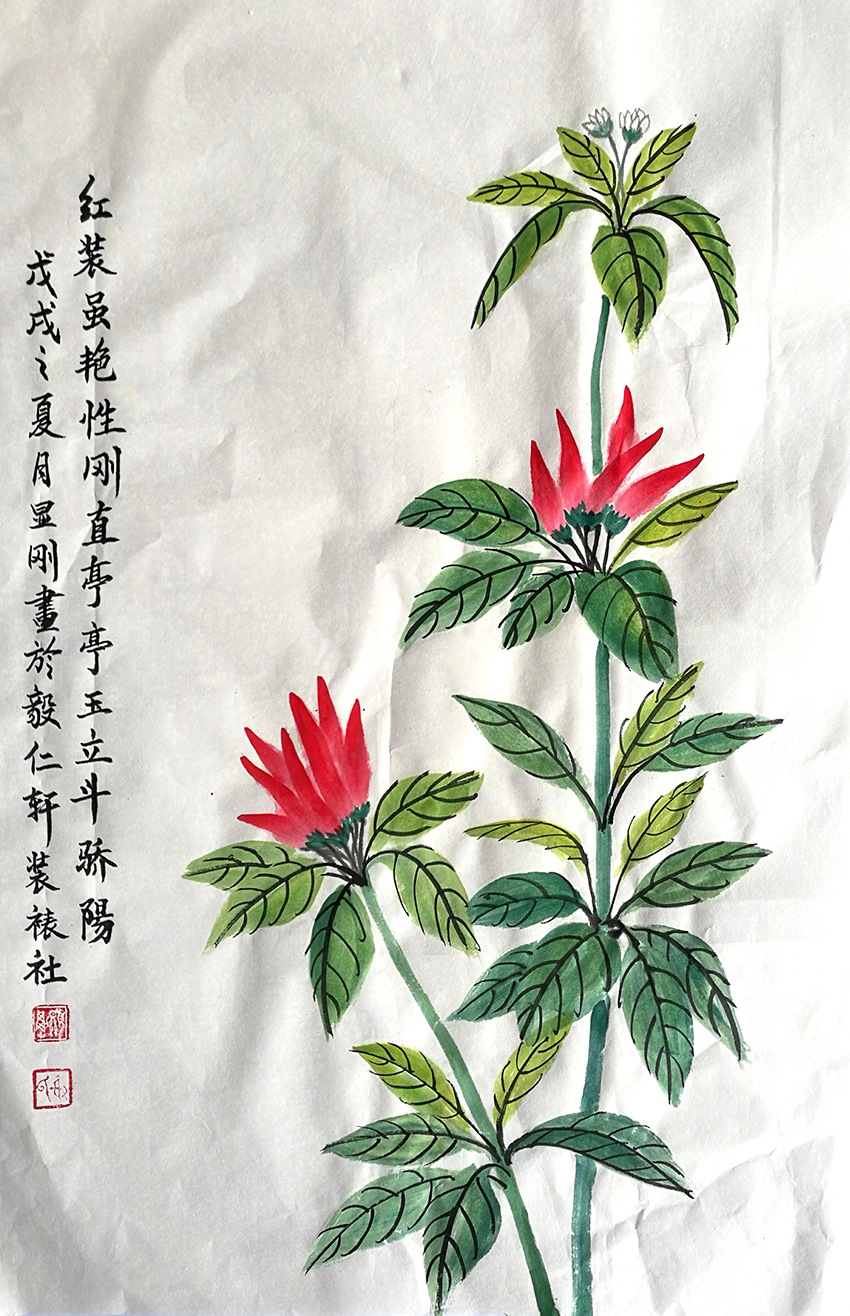 红装虽艳性刚直亭亭玉立斗骄陽
戊戌之夏月显刚畫於毅仁轩装裱社